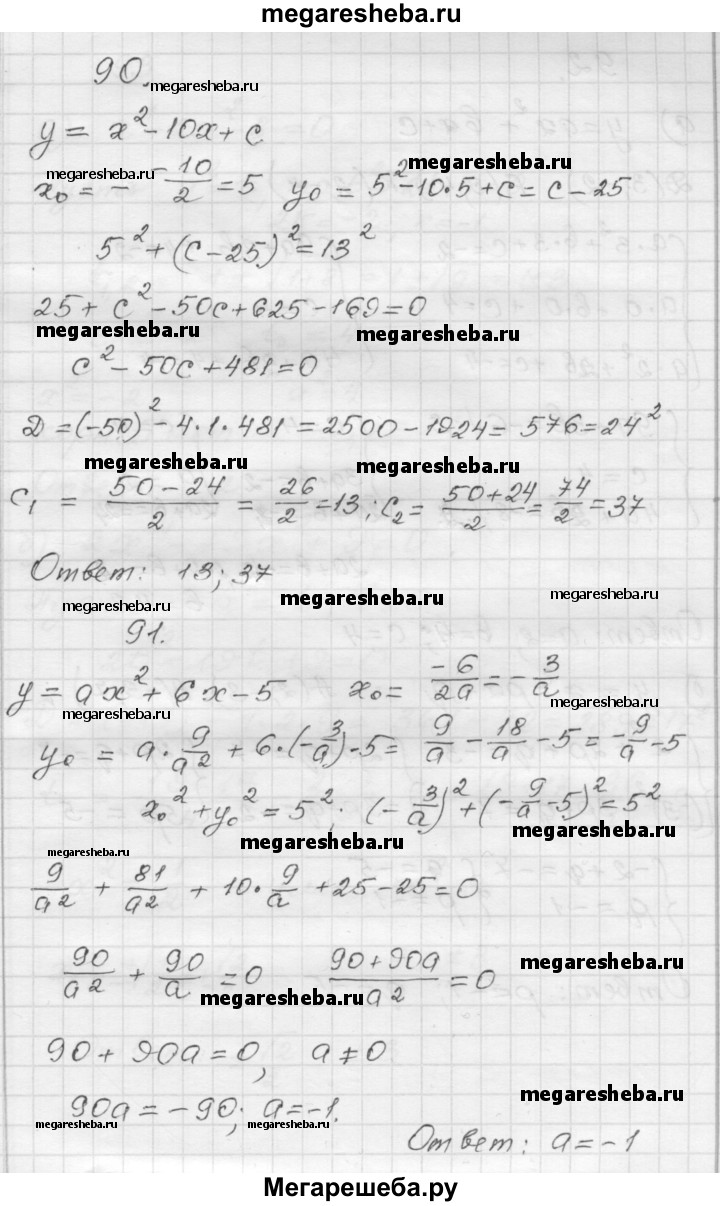 megaresheba.ru
90.
megaresheba.ru
y = x² - 10x + c
megaresheba.ru
megaresheba.ru
x₀ = - -10/2 = 5   y₀ = 5² - 10·5 + c = c - 25
5² + (c - 25)² = 13²
25 + c² - 50c + 625 - 169 = 0
megaresheba.ru
megaresheba.ru
c² - 50c + 481 = 0
D = (-50)² - 4·1·481 = 2500 - 1924 = 576 = 24²
megaresheba.ru
megaresheba.ru
c₁ = (50 - 24)/2 = 26/2 = 13; c₂ = (50 + 24)/2 = 74/2 = 37
Ответ: 13; 37
megaresheba.ru
megaresheba.ru
91.
y = ax² + 6x - 5   x₀ = -6/2a = -3/a
megaresheba.ru
megaresheba.ru
y₀ = a·9/a² + 6·(-3/a) - 5 = 9/a - 18/a - 5 = -9/a - 5
x₀² + y₀² = 5²; (-3/a)² + (-9/a - 5)² = 5²
megaresheba.ru
megaresheba.ru
megaresheba.ru
9/a² + 81/a² + 10·9/a + 25 - 25 = 0
90/a² + 90/a = 0   (90 + 90a)/a² = 0
megaresheba.ru
megaresheba.ru
90 + 90a = 0, a ≠ 0
90a = -90; a = -1.
megaresheba.ru
megaresheba.ru
megaresheba.ru
Ответ: a = -1
Мегарешеба.ру